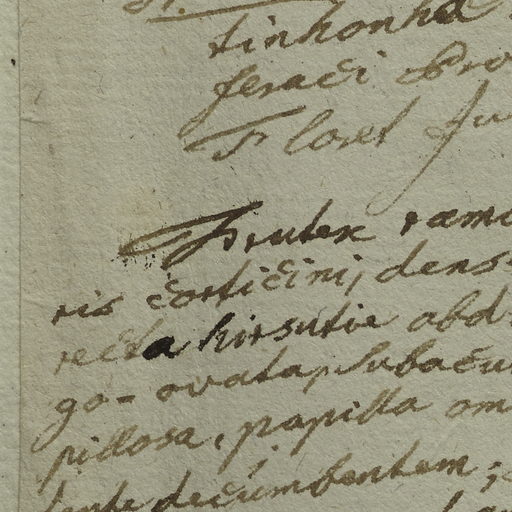 tinhonha
feraci Pro
Floret Ju
Frutex ramo
ris corticini, dens
recta hirsutie obd
go-ovata, subacu
pillosa, papilla om
tente decumbentem;